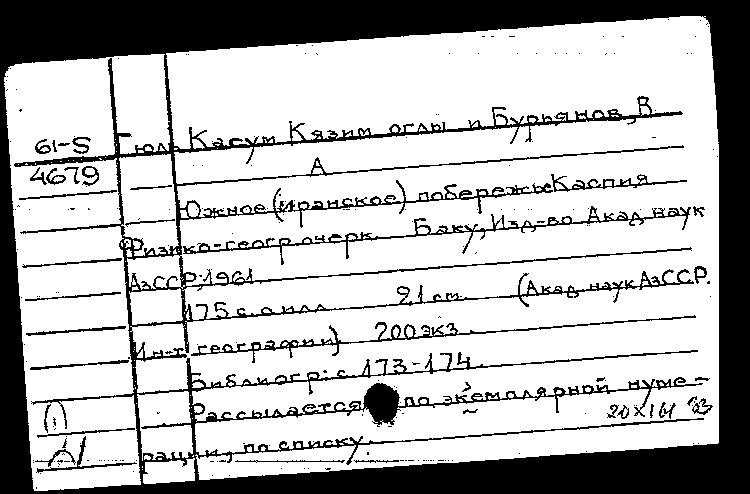 61-S Гюль Касум Кязим оглы и Бурьянов, В
4679 А
Южное (иранское) побережье Каспия
Физико-геогр. очерк. Баку, Изд-во Акад. наук
АзССР, 1961
175 с. с илл 21 см. (Акад. наук АзССР.
Ин-т географии) 200 экз.
Библиогр: с. 173-174.
Рассылается по экземплярной нуме-
рации, по списку.
20 XI 61